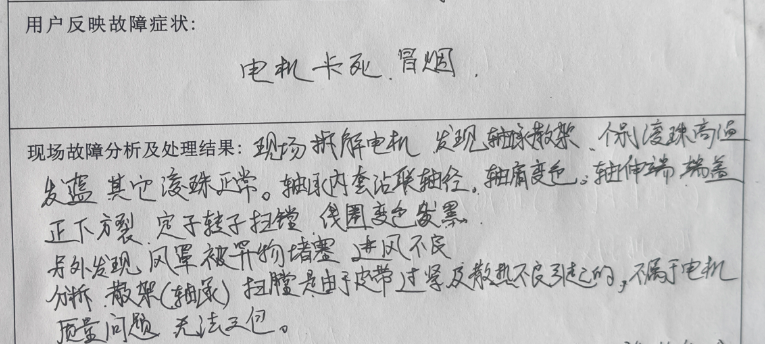 用户反映故障症状:
电机卡死.冒烟.
现场故障分析及处理结果: 现场拆解电机 发现轴承散架、个别滚珠高温
发蓝 其它滚珠正常。轴承内套沾联轴径。轴肩变色。轴伸端 端盖
正下方裂 定子转子扫镗 线圈变色发黑.
另外发现 风罩被异物堵塞 进风不良
分析 散架(轴承) 扫膛是由于皮带过紧及散热不良引起的,不属于电机
质量问题 无法三包。